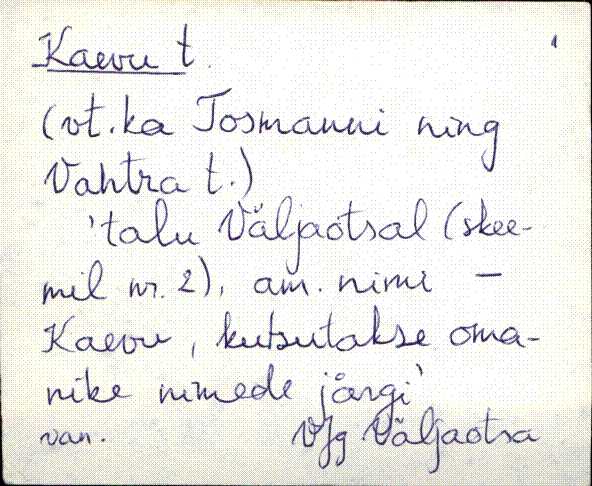 Kaevu t. 1
(vt. ka Tosmanni ning
Vahtra t.)
'talu Väljaotsal (skee-
mil nr. 2), am. nimi –
Kaevu, kutsutakse oma-
nike nimede järgi'
van. VJg Väljaotsa